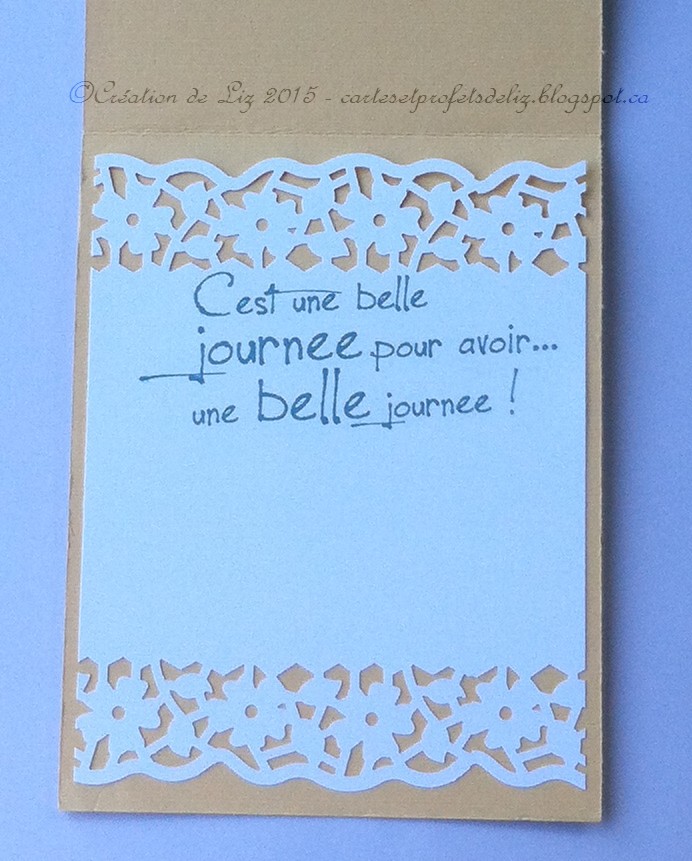 ©Création de Liz 2015 - cartesetprojetsdeliz.blogspot.ca
C'est une belle
journee pour avoir...
une belle journee !